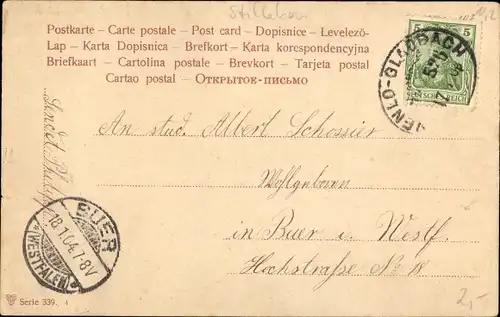 Stilleben
Postkarte - Carte postale - Post card - Dopisnice - Levelező-
Lap - Karta Dopisnica - Brefkort - Karta korespondencyjna
Briefkaart - Cartolina postale - Brevkort - Tarjeta postal
Cartao postal - Открытое-письмо
5
REICH
GLADBACH
Sendet
An stud. Albert Schossier
Wohlgeboren
in Buer i. Westf.
Hochstraße No 18
BUER
18.1.04.7-8V
(WESTFALEN)
Serie 339. 4
2,-